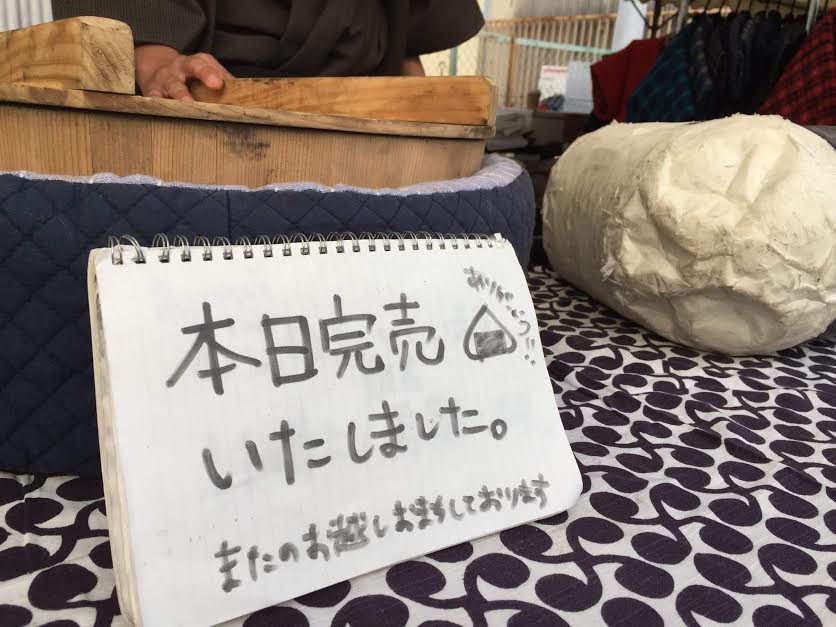 本日完売
ありがとう!!
いたしました。
またのお越しおまちしております